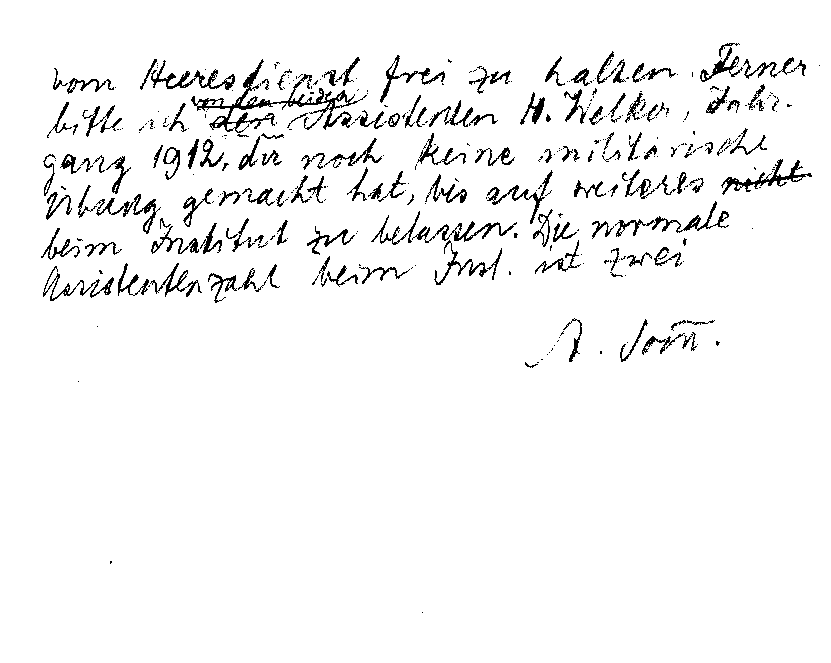 vom Heeresdienst frei zu halten. Ferner
von den beiden
bitte ich den Assistenten H. Welker, Jahr-
gang 1912, der noch keine militärische
Übung gemacht hat, bis auf weiteres nicht
beim Institut zu belassen. Die normale
Assistentenzahl beim Inst. ist zwei
A. Som̄.